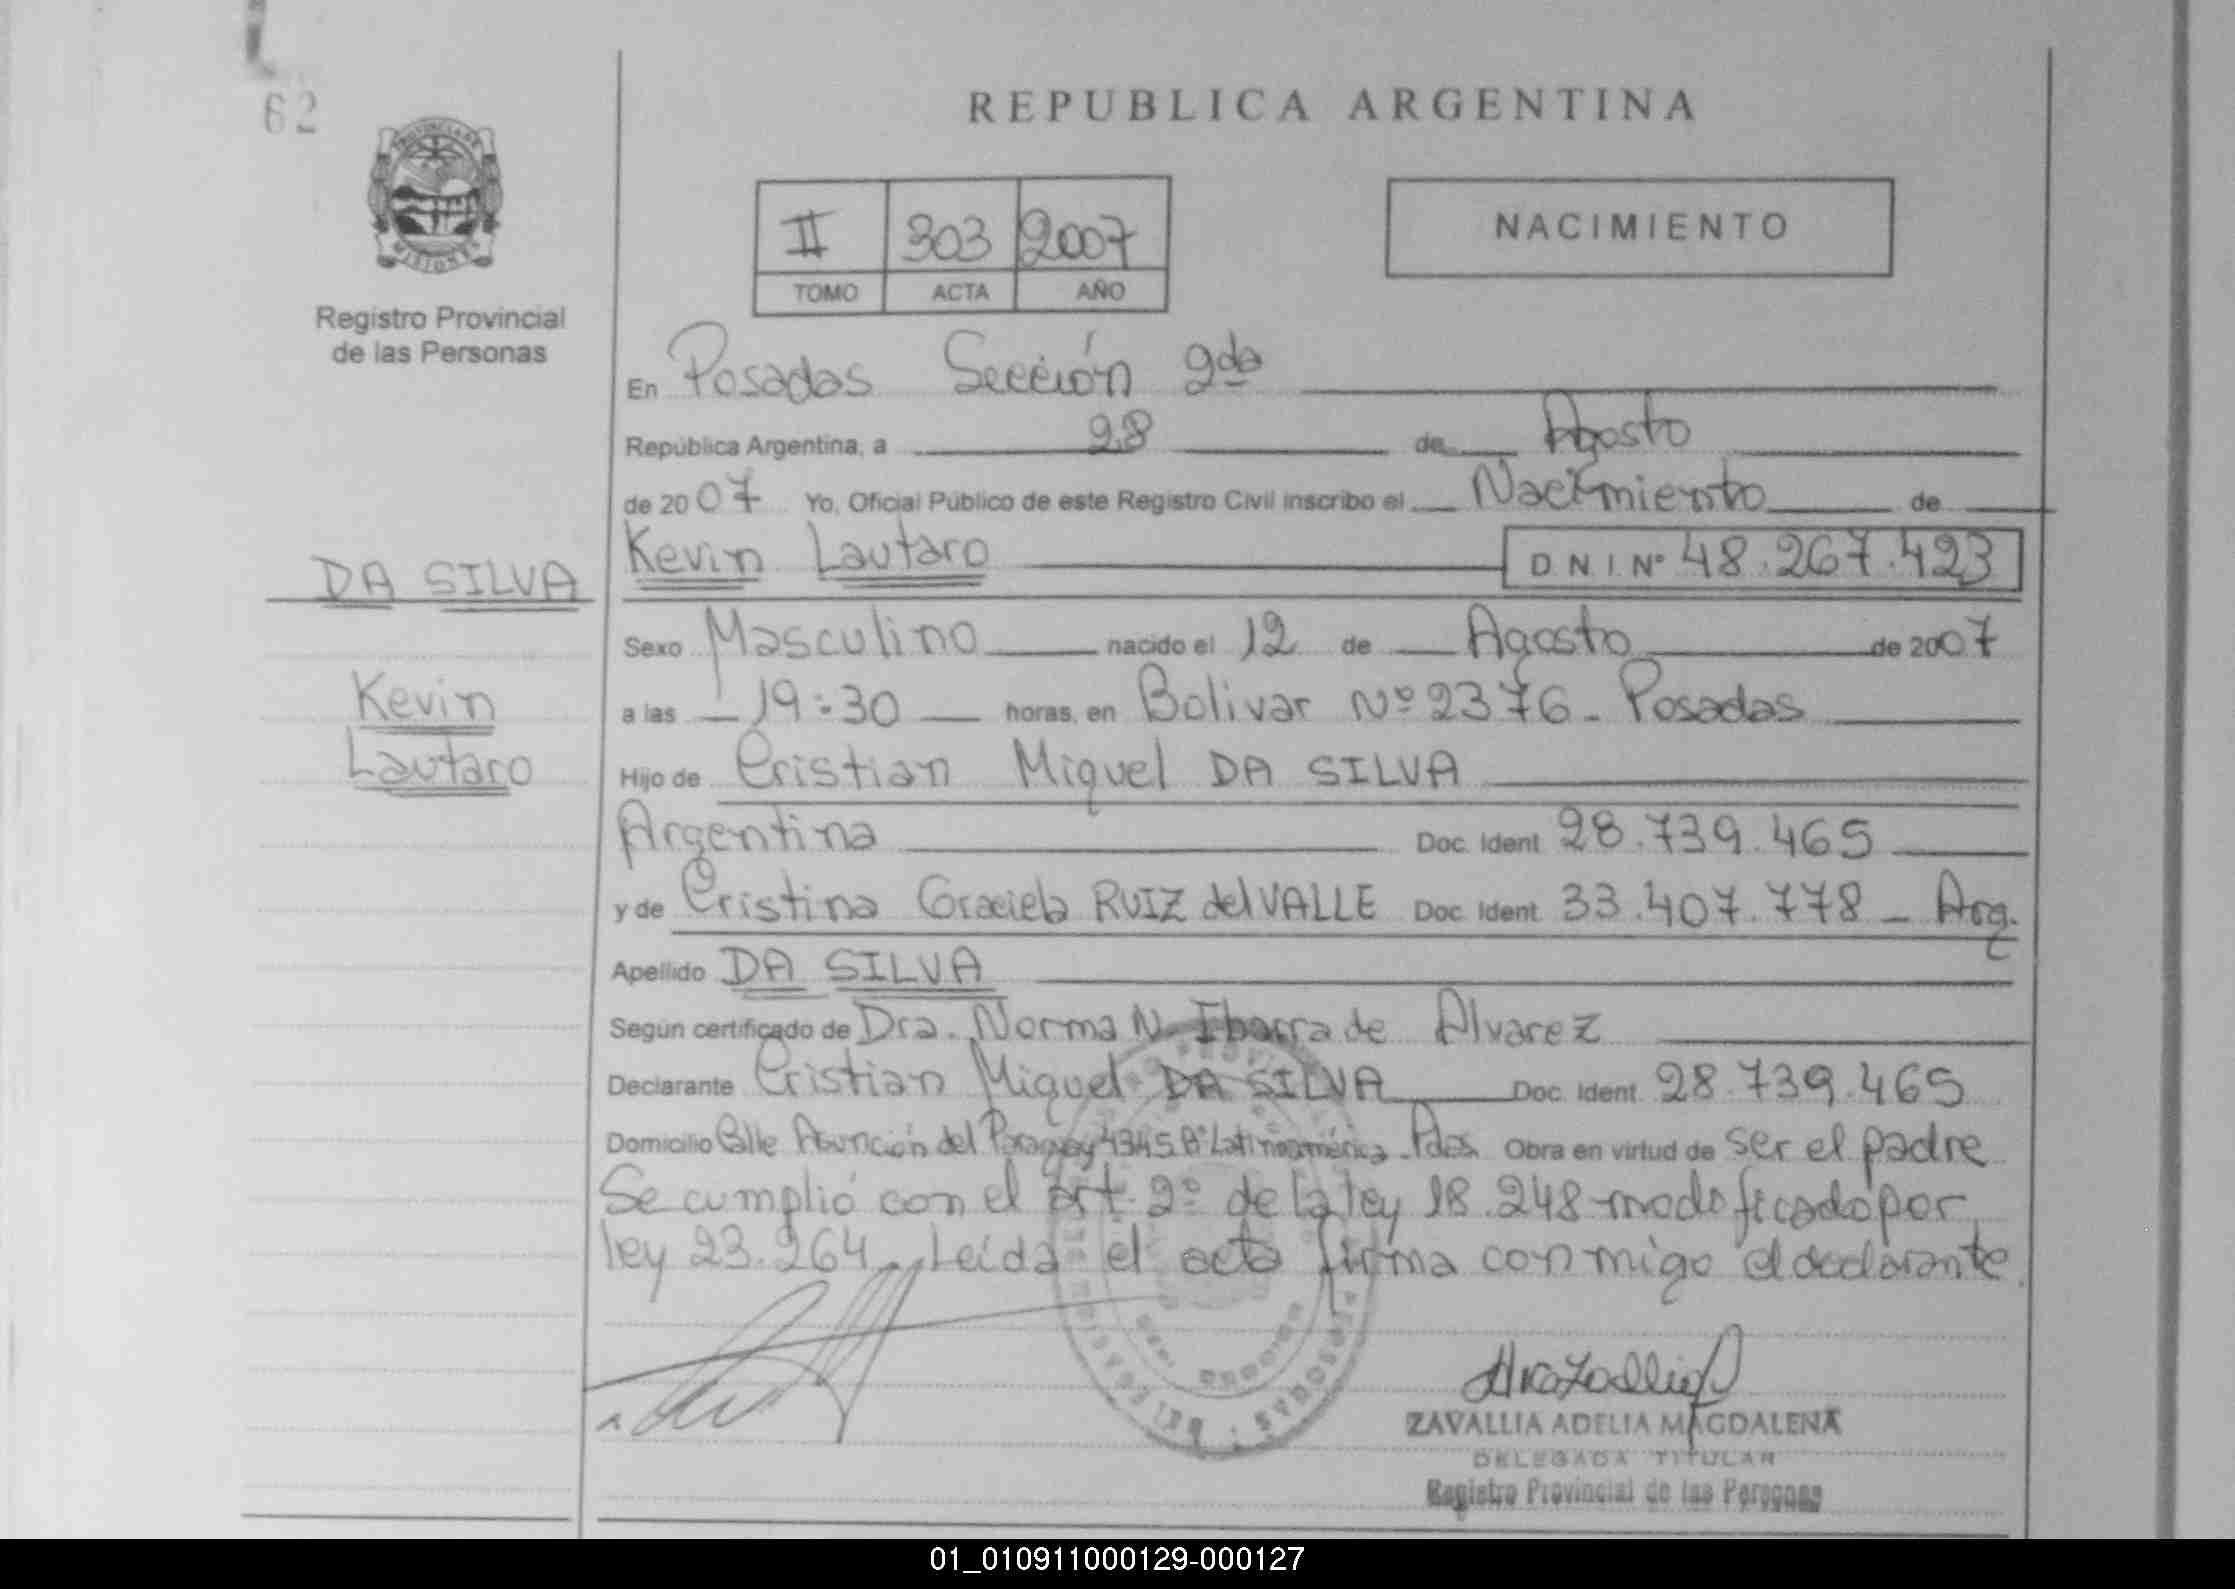 62
REPUBLICA ARGENTINA
PROVINCIA DE
MISIONES
II 303 2007
TOMO ACTA AÑO
NACIMIENTO
Registro Provincial
de las Personas
En Posadas Sección 2da
República Argentina, a 28 de Agosto
de 2007 Yo, Oficial Público de este Registro Civil inscribo el Nacimiento de
Kevin Lautaro D N I. Nº 48.267.423
DA SILVA
Kevin
Lautaro
Sexo Masculino nacido el 12 de Agosto de 2007
a las 19:30 horas, en Bolivar Nº 2376 - Posadas
Hijo de Cristian Miguel DA SILVA
Argentina Doc. Ident 28.739.465
y de Cristina Graciela RUIZ del VALLE Doc. Ident 33.407.778 - Arg.
Apellido DA SILVA
Según certificado de Dra. Norma N. Ibarra de Alvarez
Declarante Cristian Miguel DA SILVA Doc. Ident. 28.739.465
Domicilio Calle Asunción del Paraguay 4345 Bº Latinoamérica - Pdas Obra en virtud de ser el padre
Se cumplió con el art. 2º de la ley 18.248 modificado por
ley 23.264. Leída el acta firma conmigo el declarante.
ZAVALLIA ADELIA MAGDALENA
DELEGADA TITULAR
Registro Provincial de las Personas
01_010911000129-000127